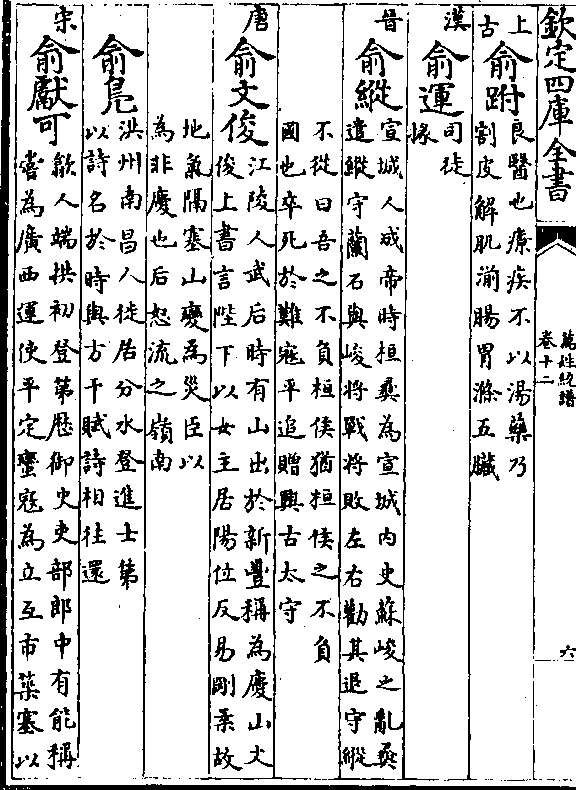 欽定四庫全書
萬姓統譜
卷十二
六
上古
俞跗
良醫也療疾不以湯藥乃
割皮解肌湔腸胃滌五臟
漢
俞運
司徒
掾
晉
俞縱
宣城人成帝時桓彝為宣城内史蘇峻之亂彝
遣縱守蘭石與峻將戰將敗左右勸其退守縱
不從曰吾之不負桓侯猶桓侯之不負
國也卒死於難寇平追贈興古太守
唐
俞文俊
江陵人武后時有山出於新豐稱為慶山文
俊上書言陛下以女主居陽位反易剛柔故
地氣隔塞山變為災臣以
為非慶也后怒流之嶺南
俞鳬
洪州南昌人徙居分水登進士第
以詩名於時與方干賦詩相往還
宋
俞獻可
歙人端拱初登第歷御史吏部郎中有能稱
嘗為廣西運使平定蠻寇為立互市築塞以